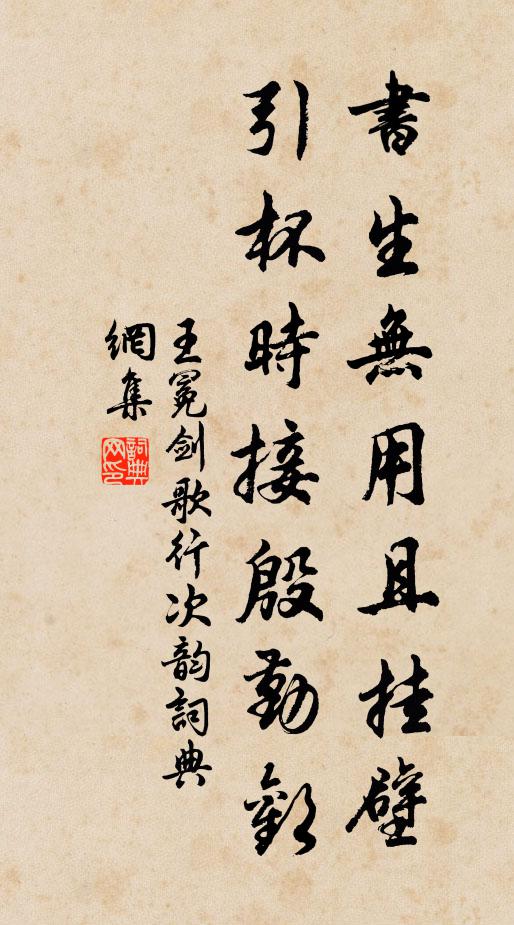 書生無用且挂壁
引杯時接殷勤觀
王冕劍歌行次韵詞典
網集
詞典
网印